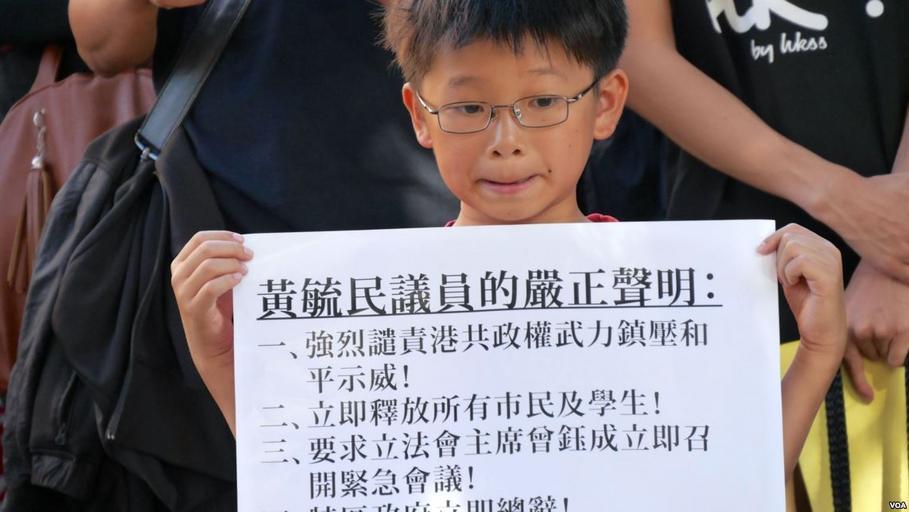 by hkss
黃毓民議員的嚴正聲明：
一、強烈譴責港共政權武力鎮壓和
平示威！
二、立即釋放所有市民及學生！
三、要求立法會主席曾鈺成立即召
開緊急會議！
特區政府立即總辭！
VOA